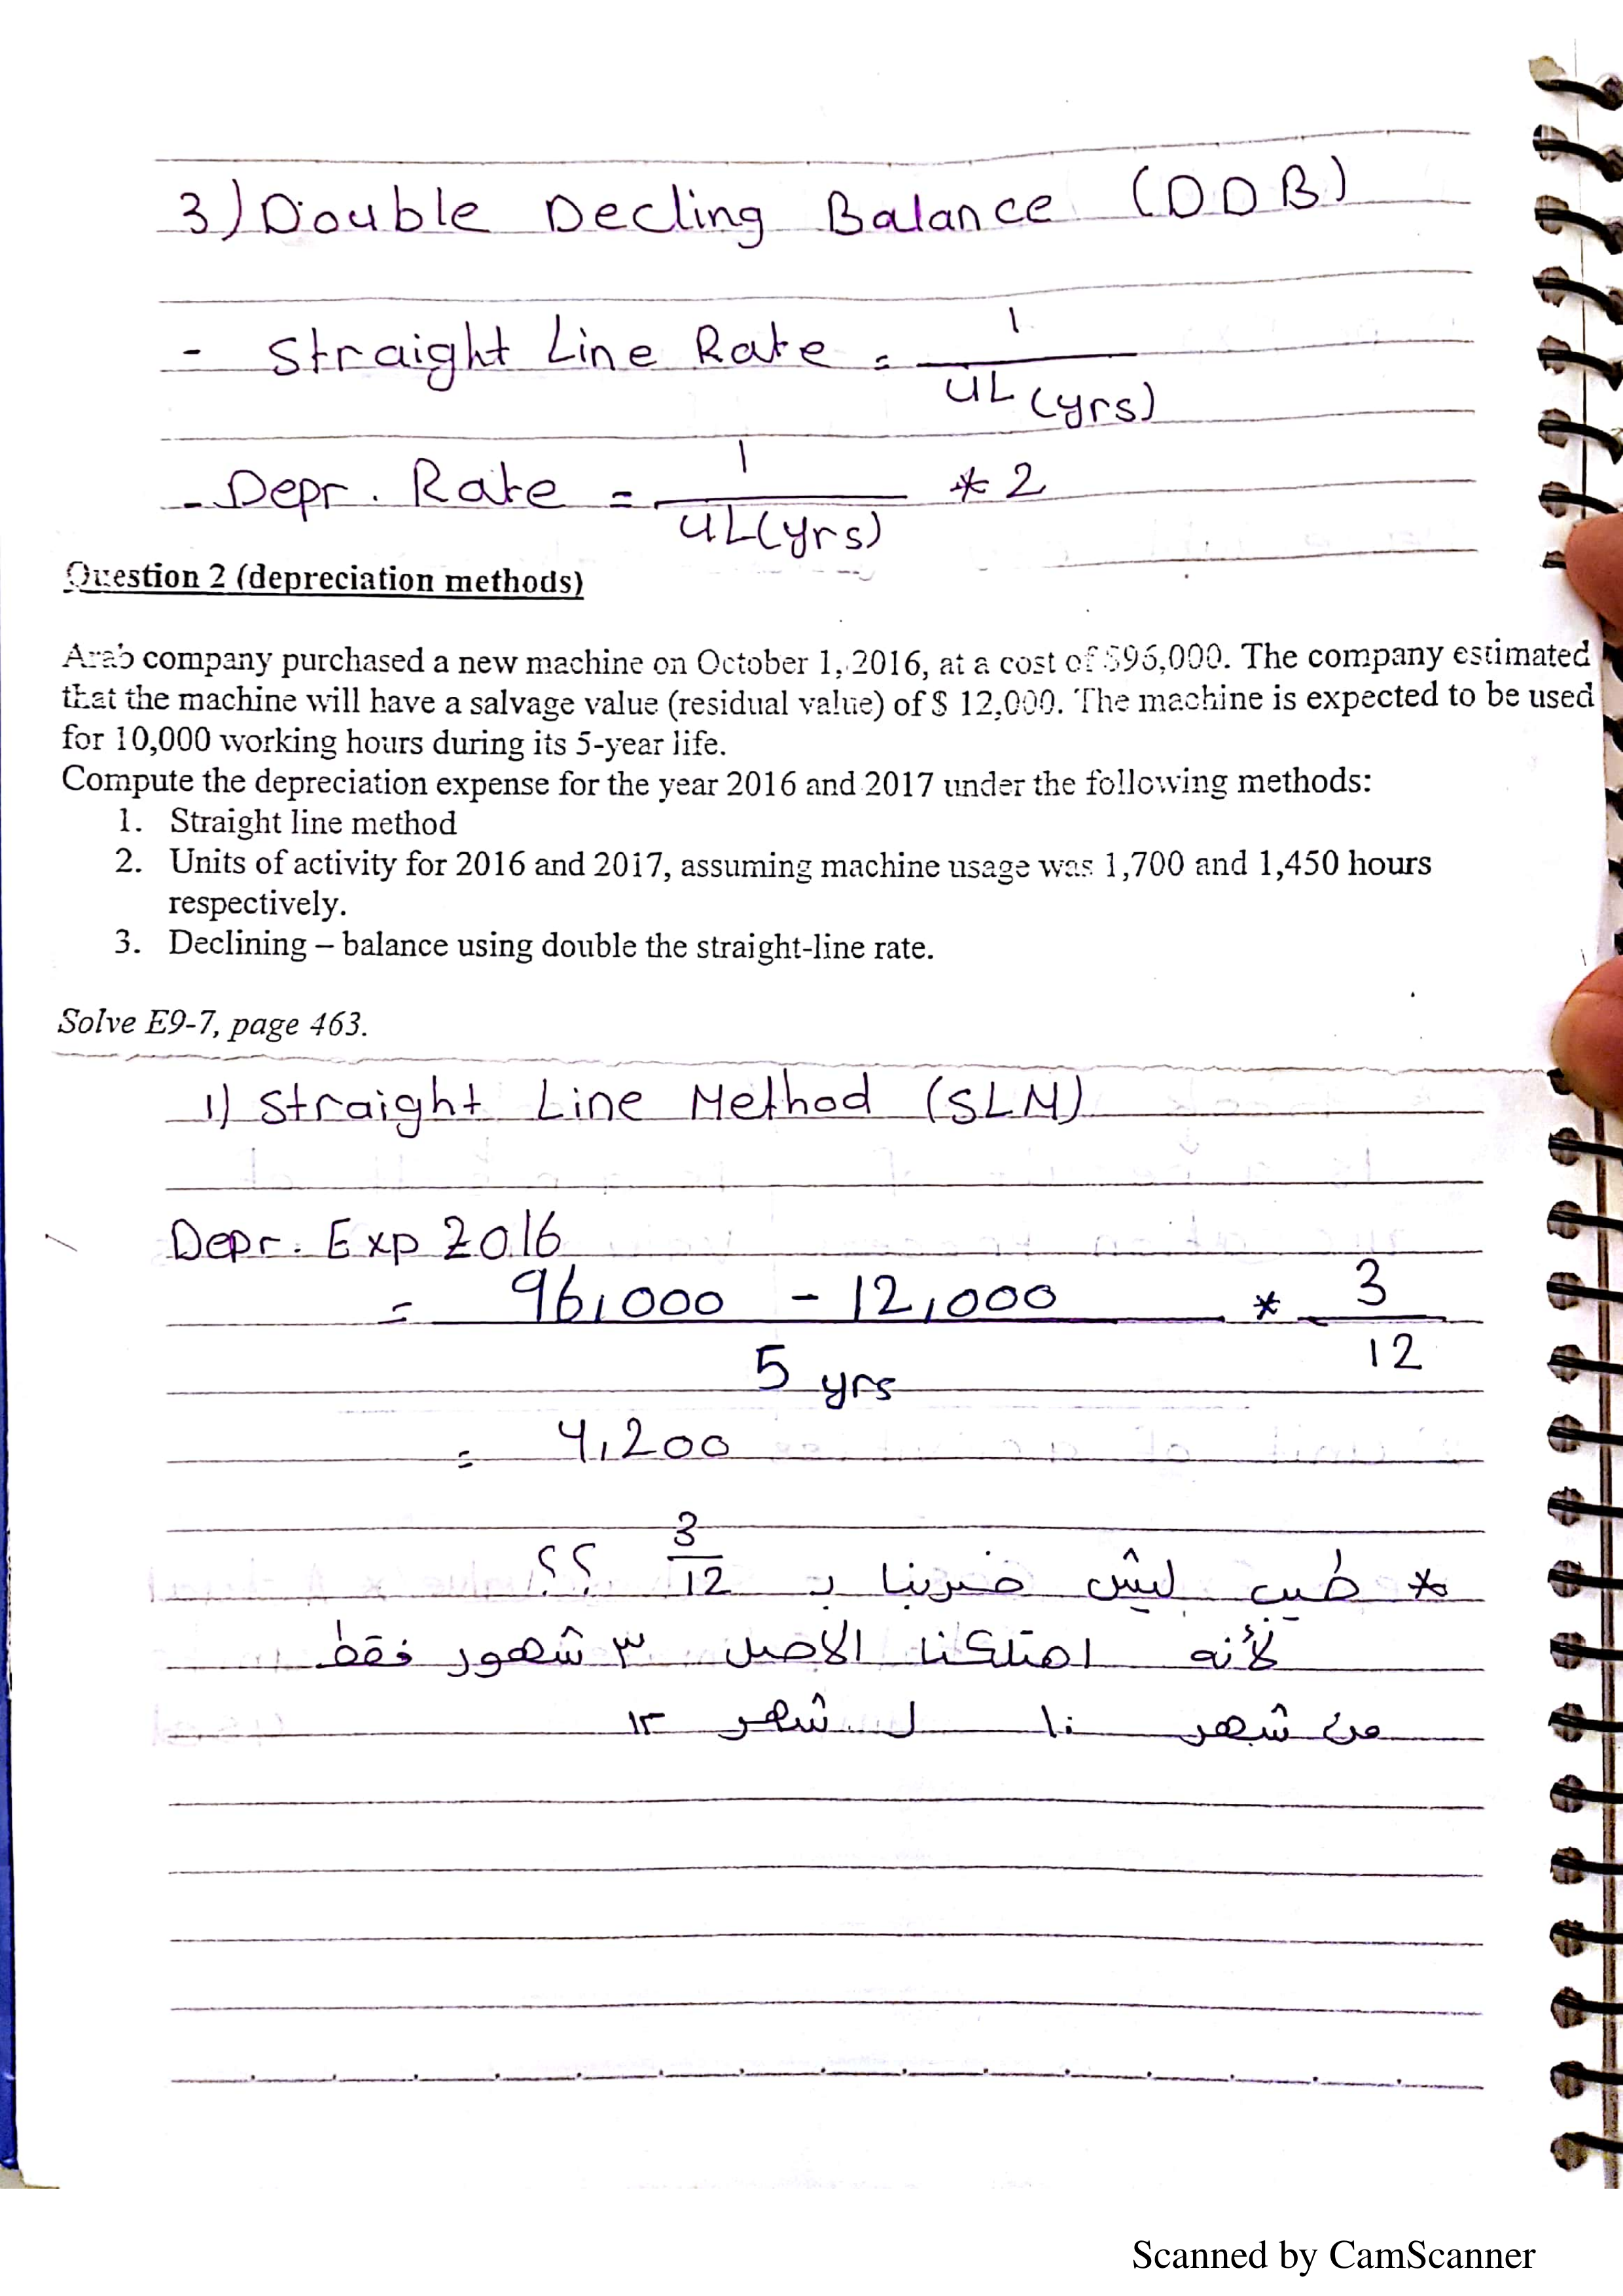 3) Double Decling Balance (DDB)
- Straight Line Rate = 1 / UL (yrs)
- Depr. Rate = 1 / UL(yrs) * 2
Question 2 (depreciation methods)
Arab company purchased a new machine on October 1, 2016, at a cost of $96,000. The company estimated
that the machine will have a salvage value (residual value) of $ 12,000. The machine is expected to be used
for 10,000 working hours during its 5-year life.
Compute the depreciation expense for the year 2016 and 2017 under the following methods:
1. Straight line method
2. Units of activity for 2016 and 2017, assuming machine usage was 1,700 and 1,450 hours
respectively.
3. Declining – balance using double the straight-line rate.
Solve E9-7, page 463.
1) Straight Line Method (SLM)
Depr. Exp 2016
= 96,000 - 12,000 / 5 yrs * 3 / 12
= 4,200
* طيب ليش ضربنا بـ 3/12 ؟؟
لأنه امتلكنا الاصل ٣ شهور فقط
من شهر ١٠ لـ شهر ١٢
Scanned by CamScanner